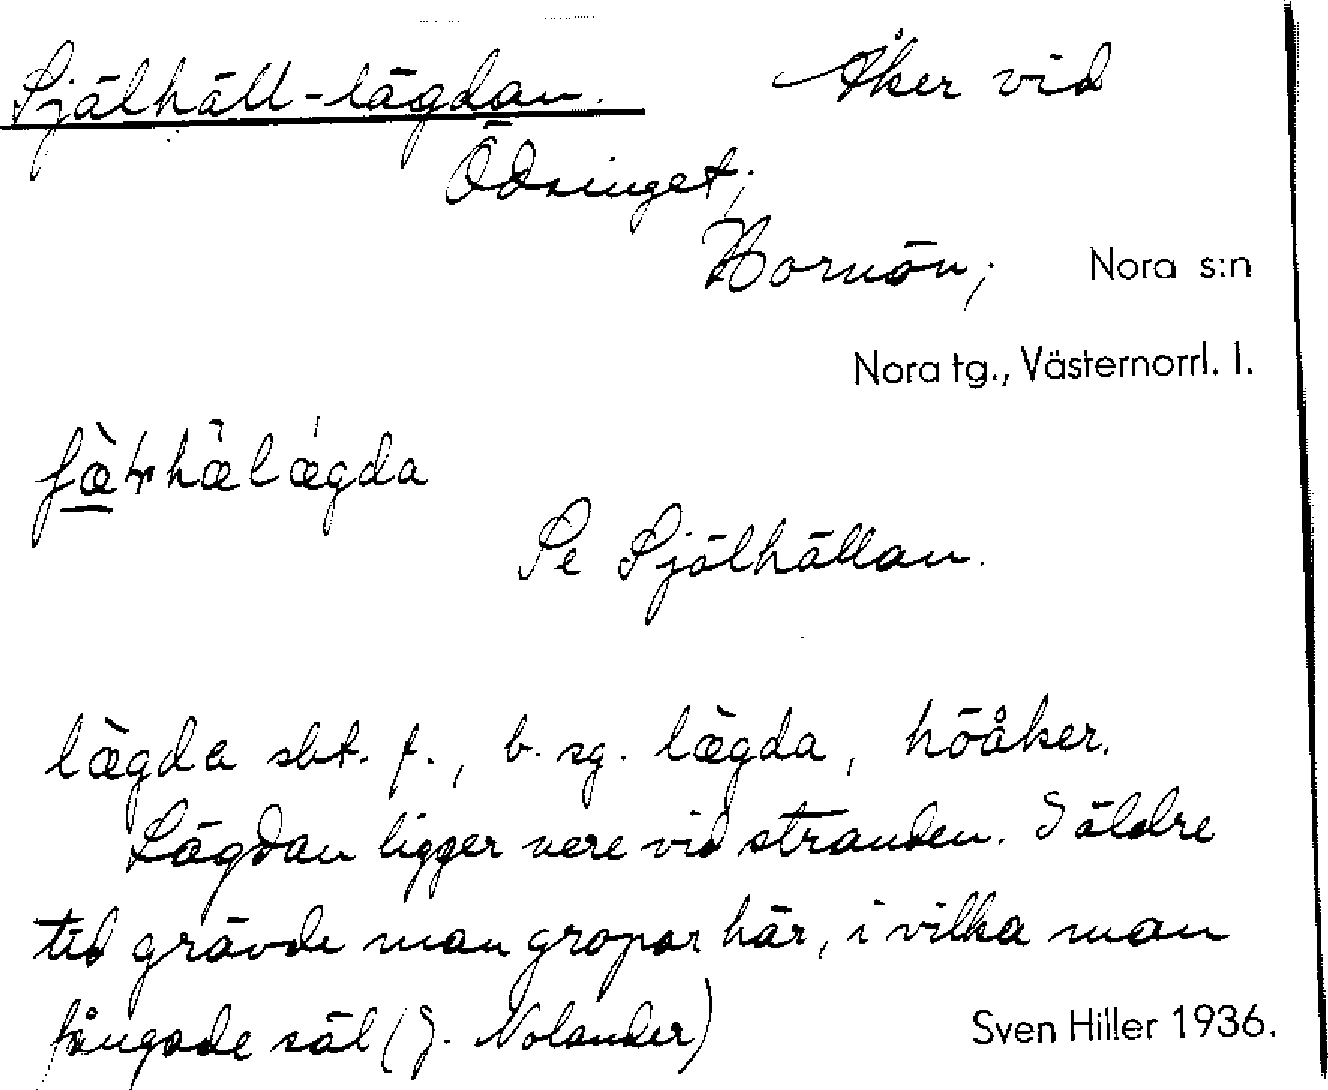 Själhäll-lägdan. Åker vid
Ödringet;
Hornön; Nora s:n
Nora tg., Västernorrl. l.
Se Själhällan.
lægda sbt. f., b. sg. lægda, höåker.
Lägdan ligger nere vid stranden. I äldre
tid grävde man gropar här, i vilka man
fångade säl (J. Nolander)
Sven Hiller 1936.